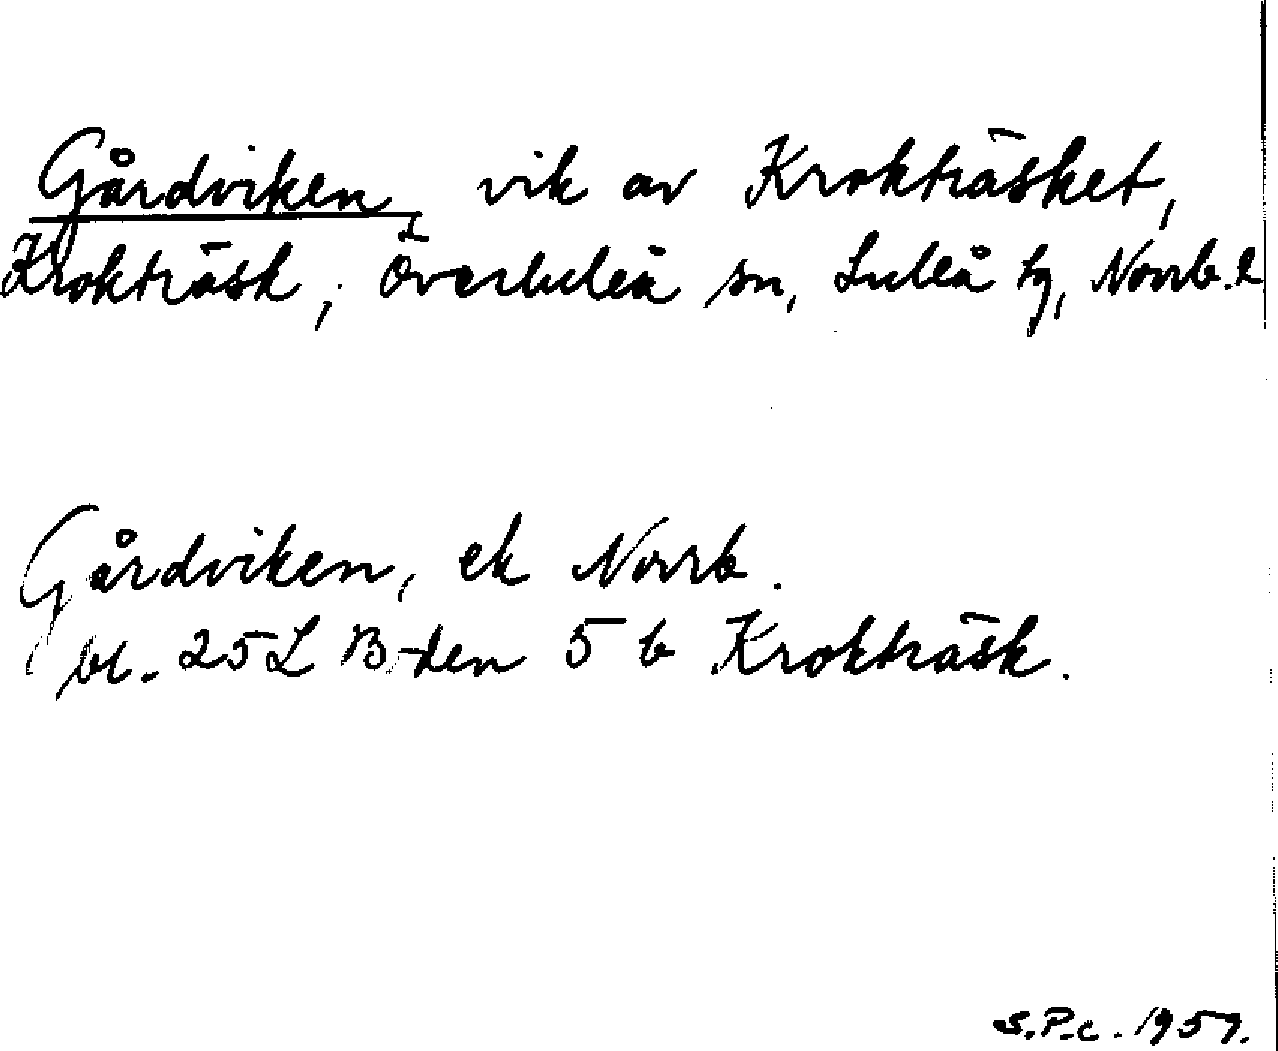 Gårdviken, vik av Krokträsket,
Krokträsk, Överluleå sn, Luleå tg, Norrb. l
Gårdviken, ek Norrb.
bl. 25L B-den 5 b Krokträsk.
S.P.c. 1957.